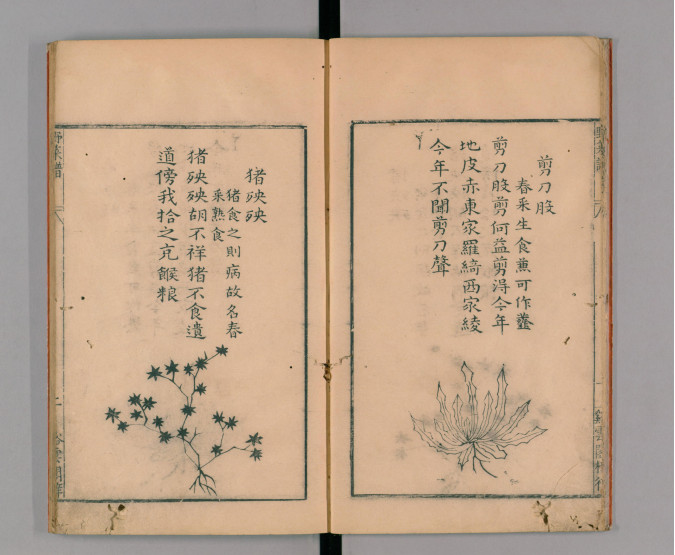 剪刀股
春采生食兼可作虀
剪刀股剪何益剪得今年
地皮赤東家羅綺西家綾
今年不聞剪刀聲
猪殃殃
猪食之則病故名春
采熟食
猪殃殃胡不祥猪不食遺
道傍我拾之充餱粮
野菜譜